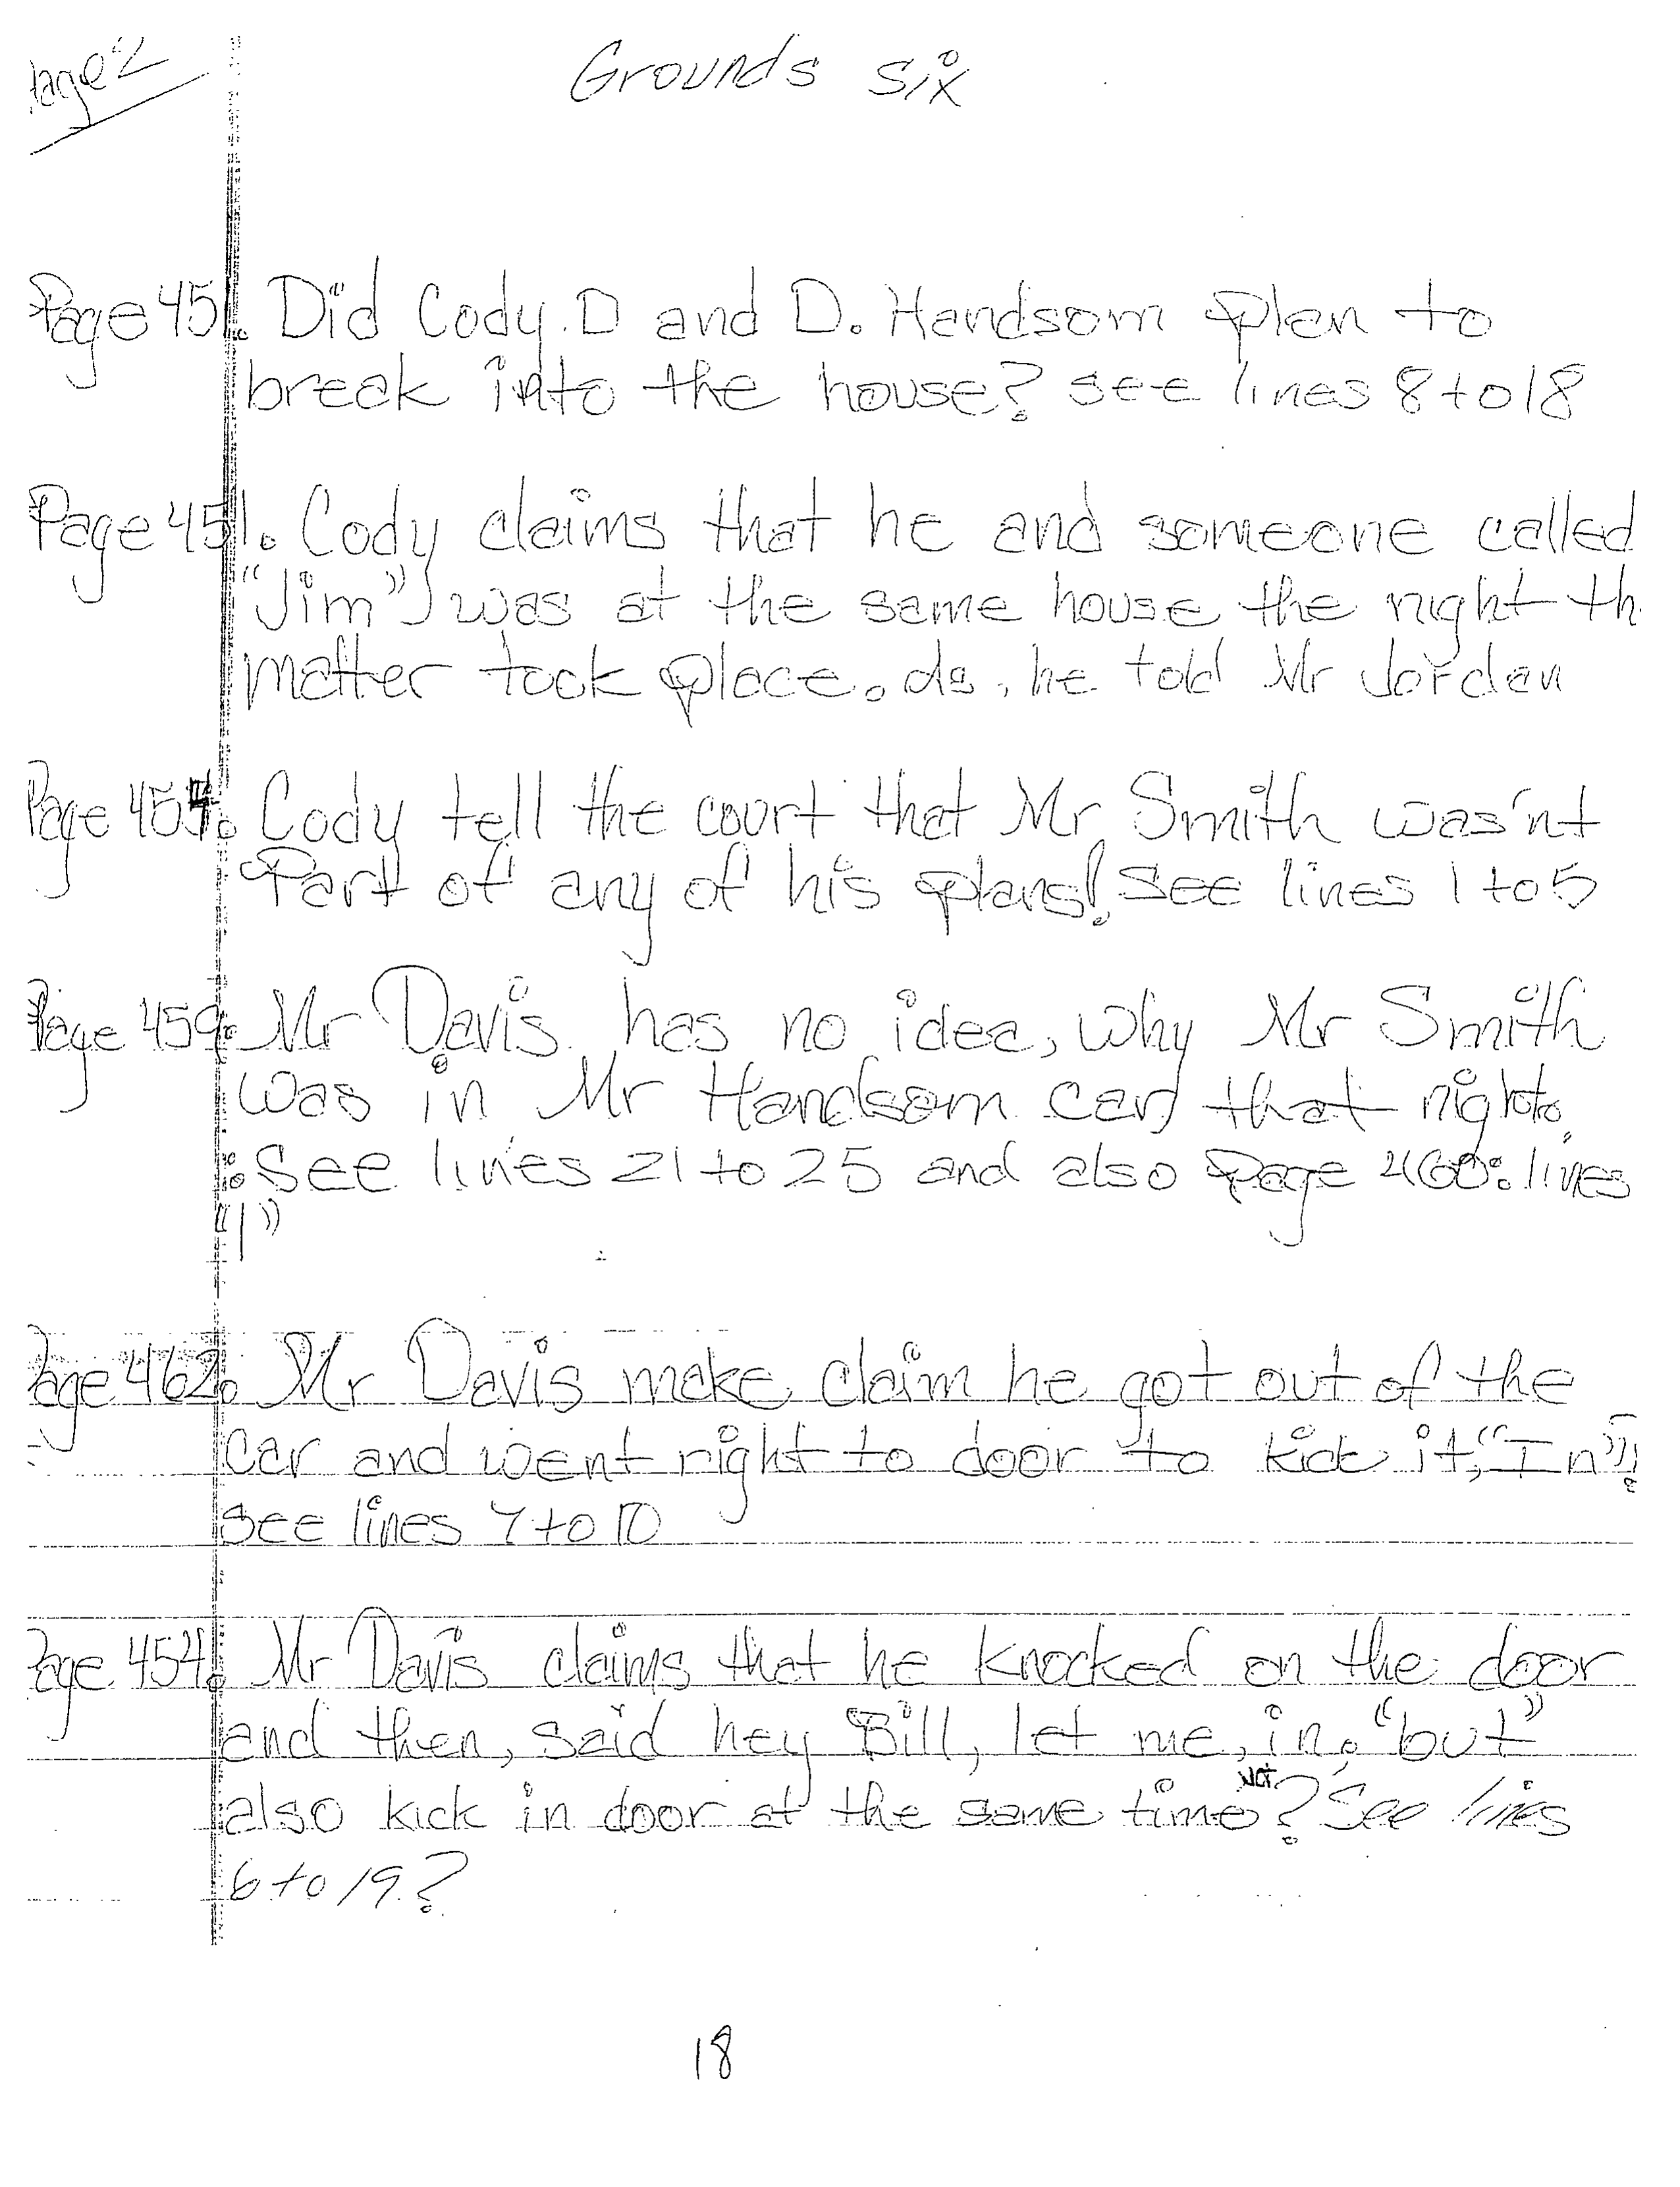 Page 2
Grounds six
Page 451. Did Cody.D and D. Handsom plan to
break into the house? see lines 8 to 18
Page 451. Cody claims that he and someone called
"Jim") was at the same house the night th
matter took place. as, he told Mr Jorden
Page 454. Cody tell the court that Mr Smith was'nt
Part of any of his plans! see lines 1 to 5
Page 459. Mr Davis has no idea, why Mr Smith
was in Mr Handsom car) that night.
: see lines 21 to 25 and also page 460: lines
"1"
Page 462. Mr Davis make claim he got out of the
car and went right to door to kick it, "In"!
see lines 7 to 10
Page 454. Mr Davis claims that he knocked on the door
and then, said hey Bill, let me, in. "but"
also kick in door at the same time NOT? See lines
6 to 19?
18